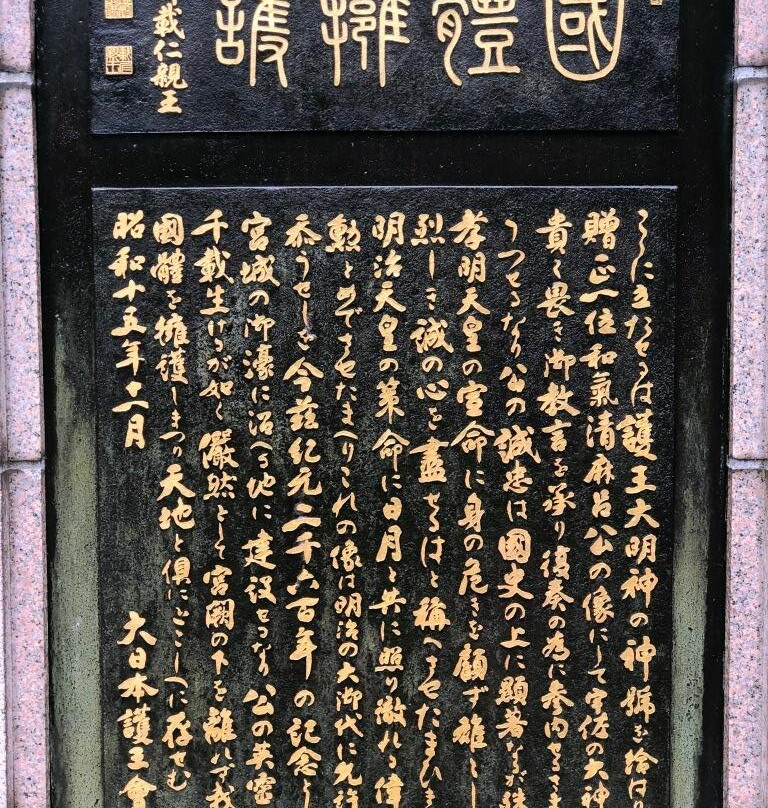 國體擁護
載仁親王
こゝに立たせるは護王大明神の神號を給はり
贈正一位和氣清麻呂公の像にして宇佐の大神
貴く畏き御教言を承り復奏の為に參内せるさま
うつせるなり公の誠忠は國史の上に顯著なるが
孝明天皇の宣命に身の危きを顧ず雄々し
烈しき誠の心を盡せるはと稱へさせたまひき
明治天皇の策命に日月と共に照り徹れる偉
勲とめでさせたまへりこれの像は明治の大御代に允許
忝うせしを今茲紀元二千六百年の記念と
宮城の御濠に沿へる地に建設せるなり公の英靈
千載生けるが如く儼然として宮闕の下を離れず我
國體を擁護しまつり天地と倶にとこしへに存せむ
昭和十五年十二月
大日本護王會